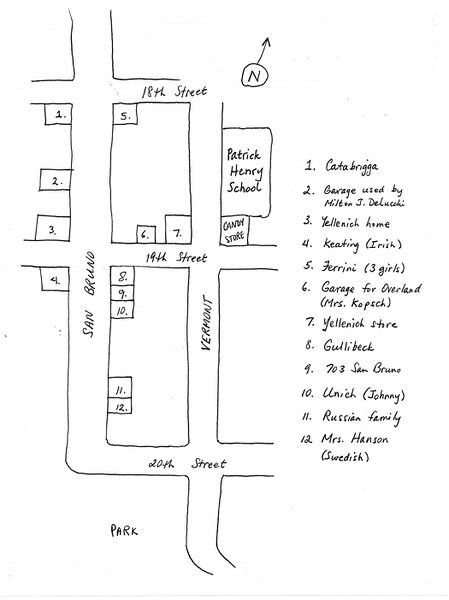 N
18th Street
1.
5.
Patrick
Henry
School
2.
3.
6.
7.
CANDY
STORE
19th Street
4.
8.
9.
10.
SAN BRUNO
VERMONT
11.
12.
20th Street
PARK
1. Catabrigga
2. Garage used by
Milton J. DeLucchi
3. Yellenich home
4 Keating (Irish)
5. Ferrini (3 girls)
6 Garage for Overland
(Mrs. Kopsch)
7. Yellenich store
8. Gullibeck
9. 703 San Bruno
10. Unich (Johnny)
11. Russian family
12 Mrs. Hanson
(Swedish)